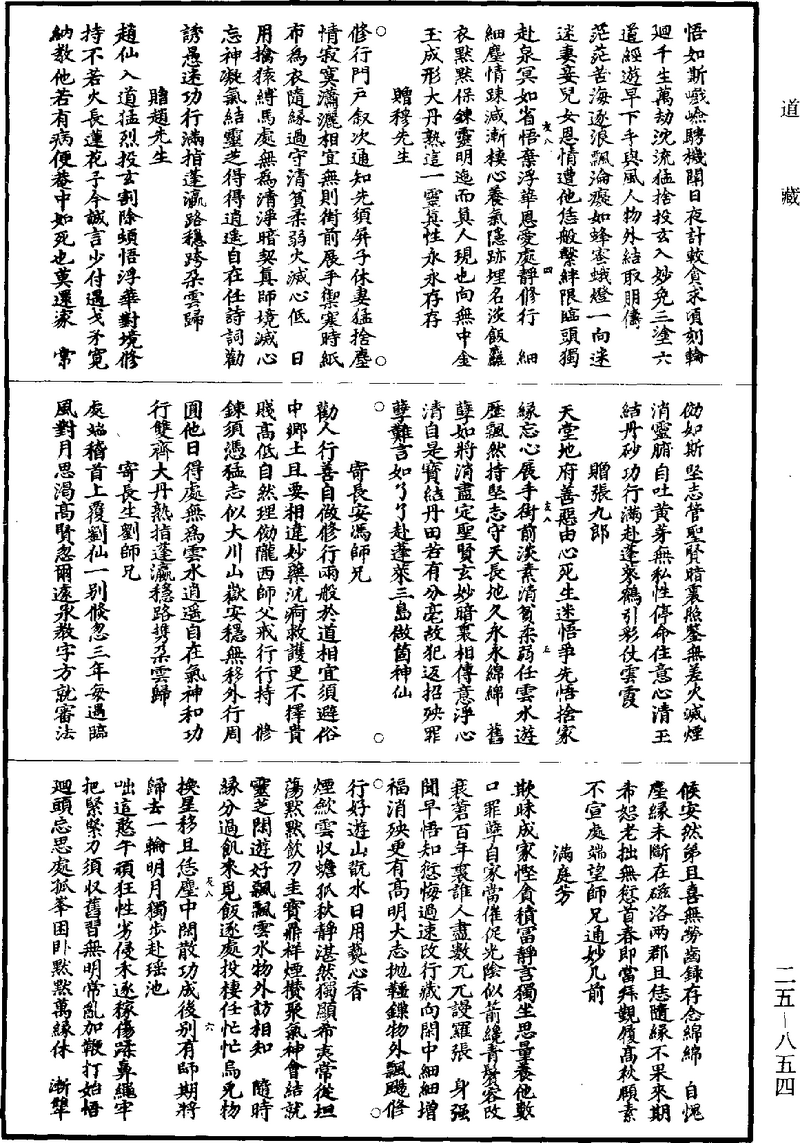 道藏
悟如斯巇嶮騁機關日夜計較貪求頃刻輪
迴千生萬劫沈流猛捨投玄入妙免三塗六
道經遊早下手與風人物外結取朋儔
茫茫苦海逐浪飄淪癡如蜂蜜蛾燈一向迷
迷妻妾兒女恩情遭他恁般繫絆限臨頭獨
赴泉冥如省悟棄浮華恩愛處靜修行　細
細塵情踈減漸棲心養氣隱跡埋名淡飯麤
衣默默保鍊靈明迤而真人現也向無中金
玉成形大丹熟這一靈真性永永存存
贈穆先生
修行門戶叙次通知先須屏子休妻猛捨塵
情寂寞瀟灑相宜無則街前展手禦寒時紙
布為衣隨緣過守清貧柔弱火滅心低　日
用擒猿縛馬處無為清淨暗契真師境滅心
忘神凝氣結靈芝得得逍遥自在任詩詞勸
誘愚迷功行滿指蓬瀛路穩跨朵雲歸
贈趙先生
趙仙入道猛烈投玄割除頓悟浮華對境修
持不若火長蓮花子今誠言少付遇戈矛寬
納教他若有病便菴中如死也莫還家　常
伮如斯堅志管聖賢暗裏照鑒無差火滅煙
消靈腑自吐黄芽無私性停命住意心清玉
結丹砂功行滿赴蓬萊鶴引彩仗雲霞
贈張九郎
天堂地府善惡由心死生迷悟爭先悟捨家
緣忘心展手街前淡素消貧柔弱任雲水遊
歷飄然持堅志守天長地久永永綿綿　舊
孽如將消盡定聖賢玄妙暗裏相傳意淨心
清自是寶結丹田若有分毫故犯返招殃罪
孽難言如了了赴蓬萊三島做箇神仙
寄長安馮師兄
勸人行善自做修行兩般於道相宜須避俗
中鄉土且要相違妙藥沈痾救護更不擇貴
賤高低自然理伮隴西師父戒行行持　修
鍊須憑猛志似大川山嶽安穩無移外行周
圓他日得處無為雲水逍遥自在氣神和功
行雙齊大丹熟指蓬瀛穩路携朵雲歸
寄長生劉師兄
處端稽首上覆劉仙一别倐忽三年每遇臨
風對月思渴高賢忽爾遠承教字方就審法
候安然弟且喜無勞齒錄存念綿綿　自愧
塵緣未斷在磁洛兩郡且恁隨緣不果來期
希恕老拙無愆首春即當拜覲履髙秋願素
不宣處端望師兄通妙几前
滿庭芳
欺昧成家慳貪積富靜言獨坐思量養他數
口罪孽自家當催促光陰似箭纔青鬢容改
衰蒼百年裏誰人盡數兀兀謾羅張　身强
聞早悟知愆悔過速改行藏向閑中細細增
福消殃更有髙明大志抛韁鏁物外飄颺修
行好遊山翫水日用爇心香
煙歛雲収蟾孤秋靜湛然獨顯希夷常從坦
蕩默默飲刀圭寶鼎祥煙攢聚氣神會結就
靈芝閑遊好飄飄雲水物外訪相知　隨時
緣分過飢來覓飯逐處投棲任忙忙烏兎物
換星移且恁塵中閑散功成後别有師期將
歸去一輪明月獨步赴瑶池
咄這憨牛頑狂性劣侵禾逐稼傷蹂鼻繩牢
把緊緊刀須収舊習無明常亂加鞭打始悟
迴頭忘思處孤峯困卧默默萬緣休　漸犂
二五—八五四